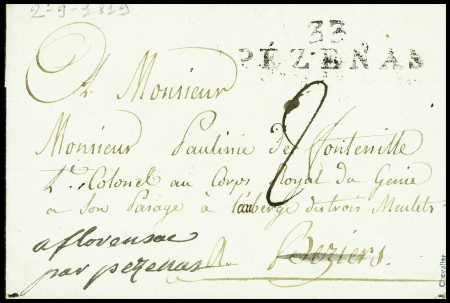 2-9-1819
33
PÉZENAS
A Monsieur
Monsieur Paulinié de Fontenille
Lt. Colonel au Corps Royal du Génie
a Son Passage à l'auberge des trois Meulets
2
a florensac
par pezenas
A Beziers.